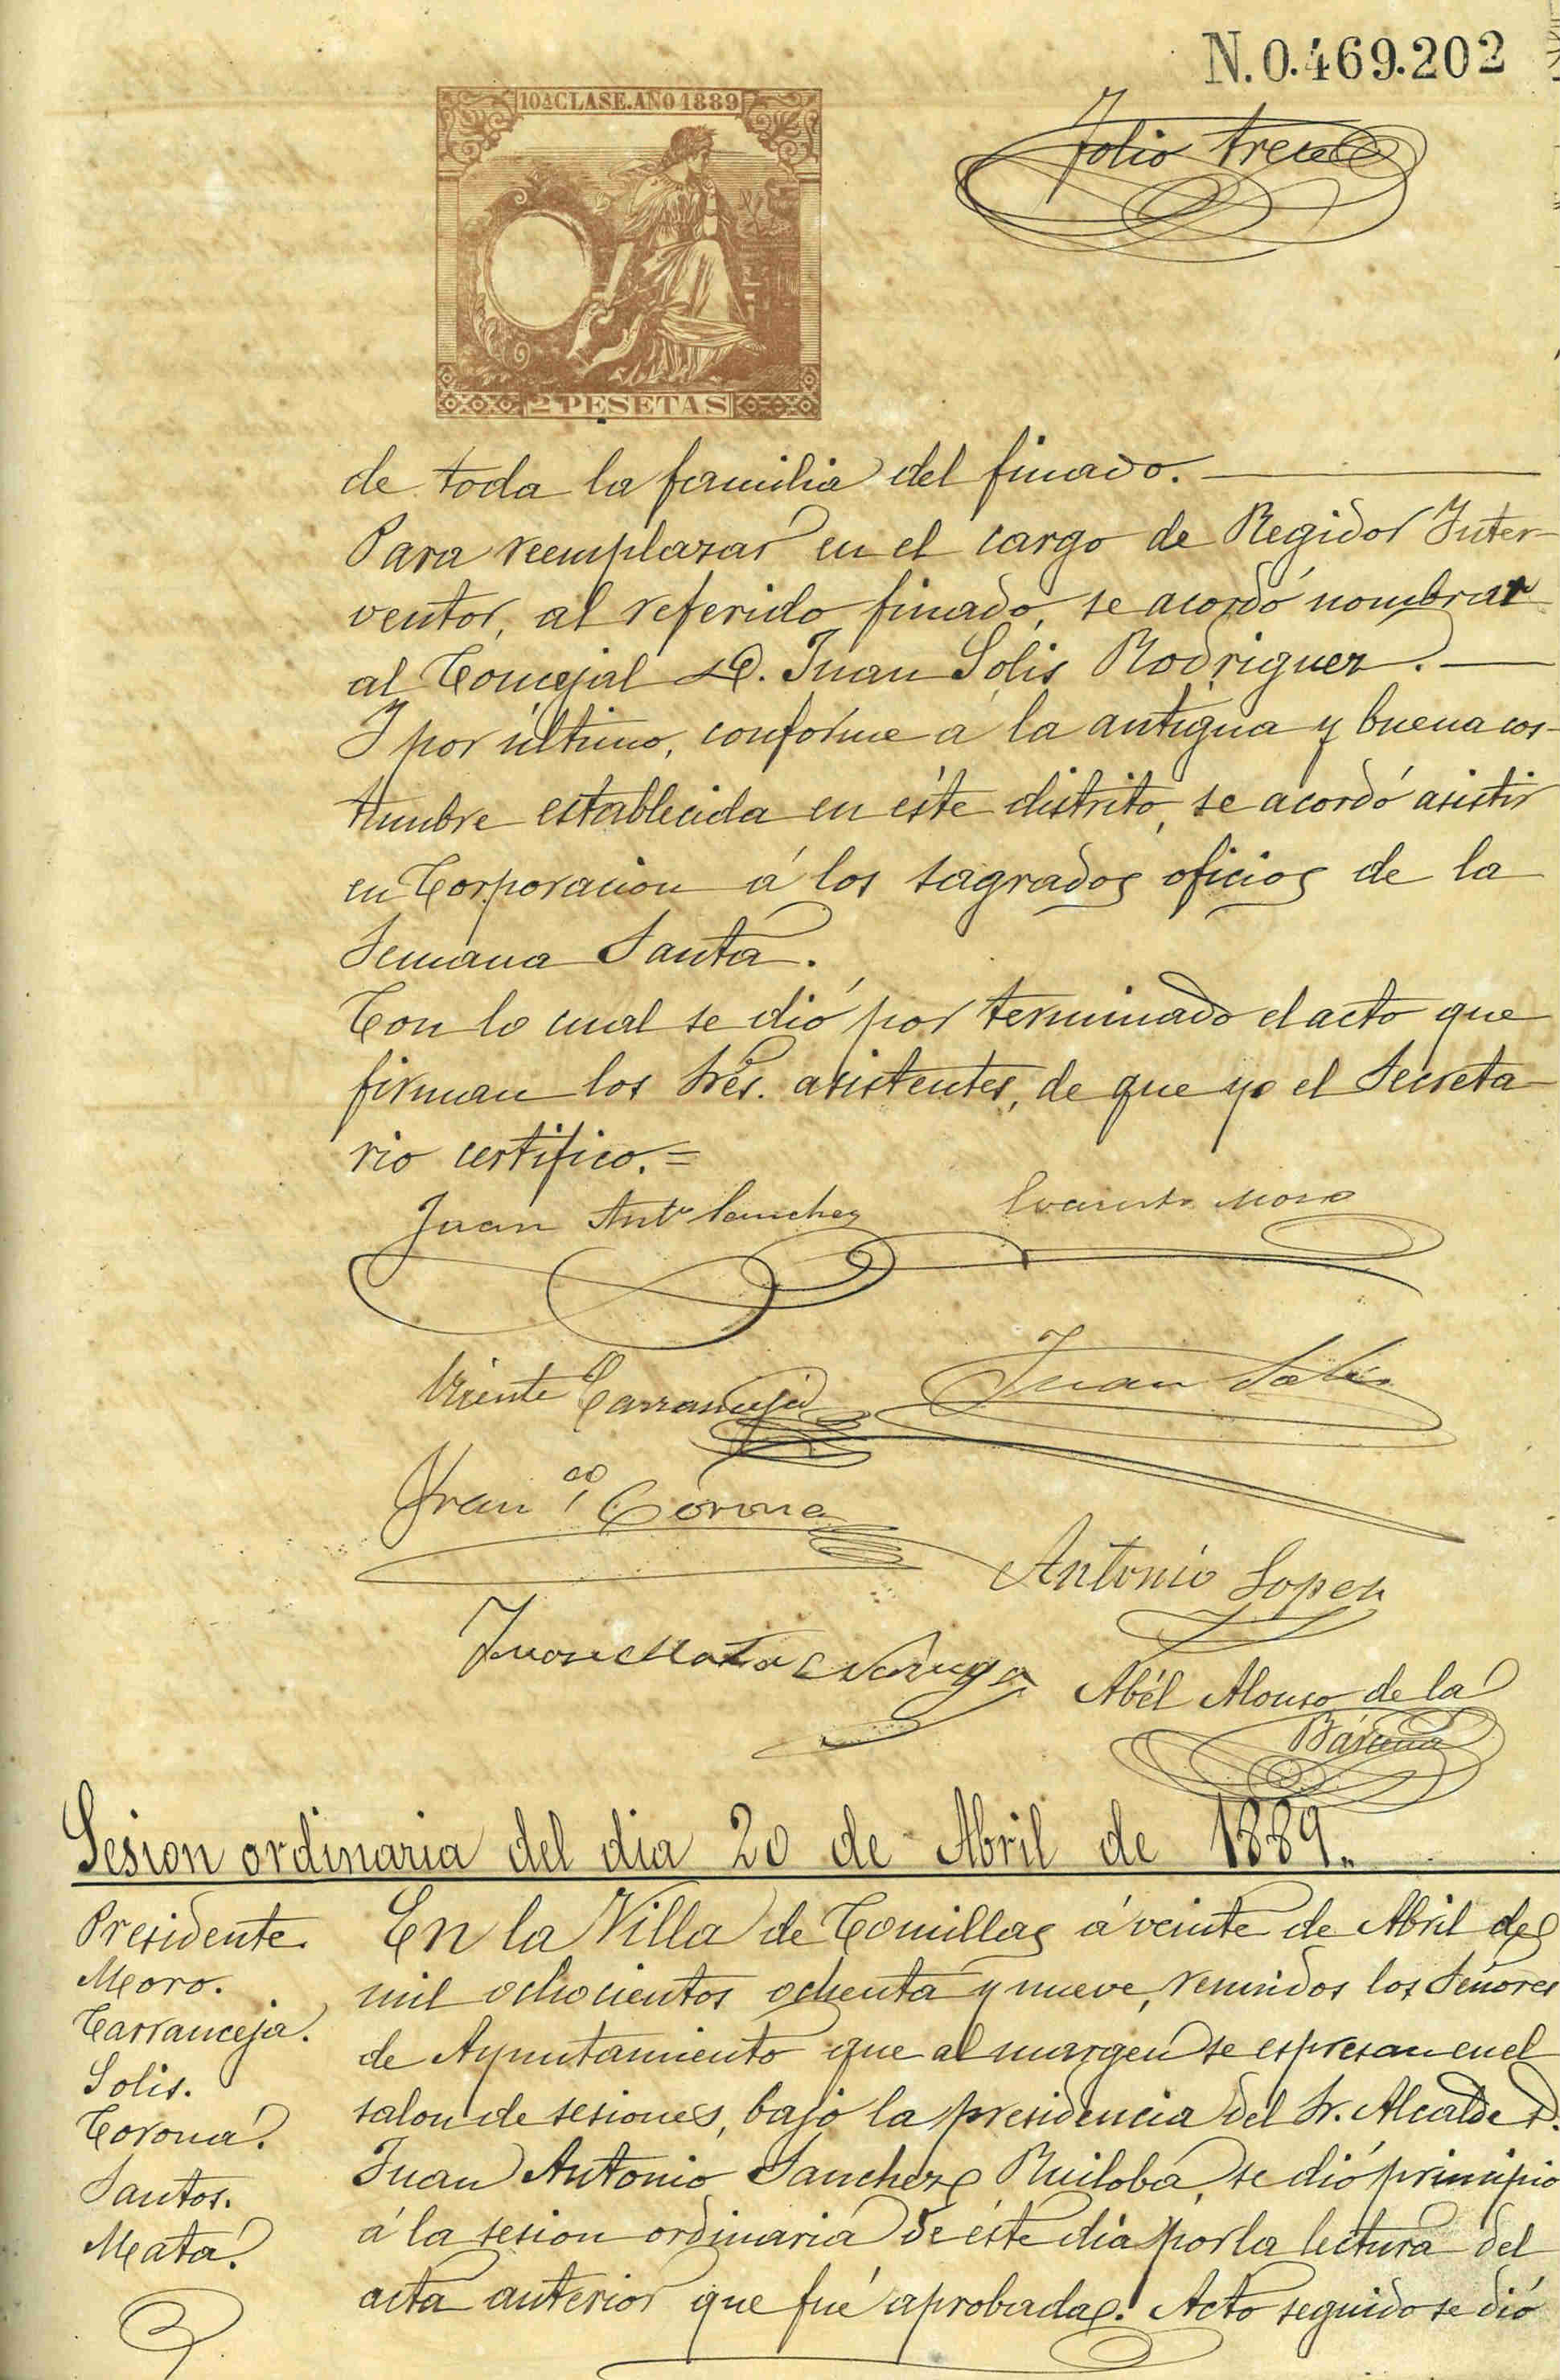 N.0.469.202
10ª CLASE. AÑO 1889
Folio trece
2 PESETAS
de toda la familia del finado.
Para reemplazar en el cargo de Regidor Inter-
ventor, al referido finado, se acordó nombrar
al Concejal D. Juan Solis Rodriguez.
Y por último, conforme á la antigua y buena cos-
tumbre establecida en éste distrito, se acordó asistir
en Corporacion á los sagrados oficios de la
Semana Santa.
Con lo cual se dió por terminado el acto que
firman los Srés. asistentes, de que yo el Secreta
rio certifico.=
Juan Antº Sanchez Evaristo Moro
Vicente Carranceja Juan Solis
Franco Corona
Antonio Lopez
Juan Mata
Abél Alonso de la
Bárcena
Sesion ordinaria del dia 20 de Abril de 1889.
Presidente.
Moro.
Carranceja.
Solis.
Corona.
Santos.
Mata.
En la Villa de Comillas á veinte de Abril de
mil ochocientos ochenta y nueve, reunidos los Señores
de Ayuntamiento que al margen se espresan en el
salon de sesiones, bajo la presidencia del Sr. Alcalde D.
Juan Antonio Sanchez Ruiloba, se dió principio
á la sesion ordinaria de éste dia por la lectura del
acta anterior que fué aprobada. Acto seguido se dió